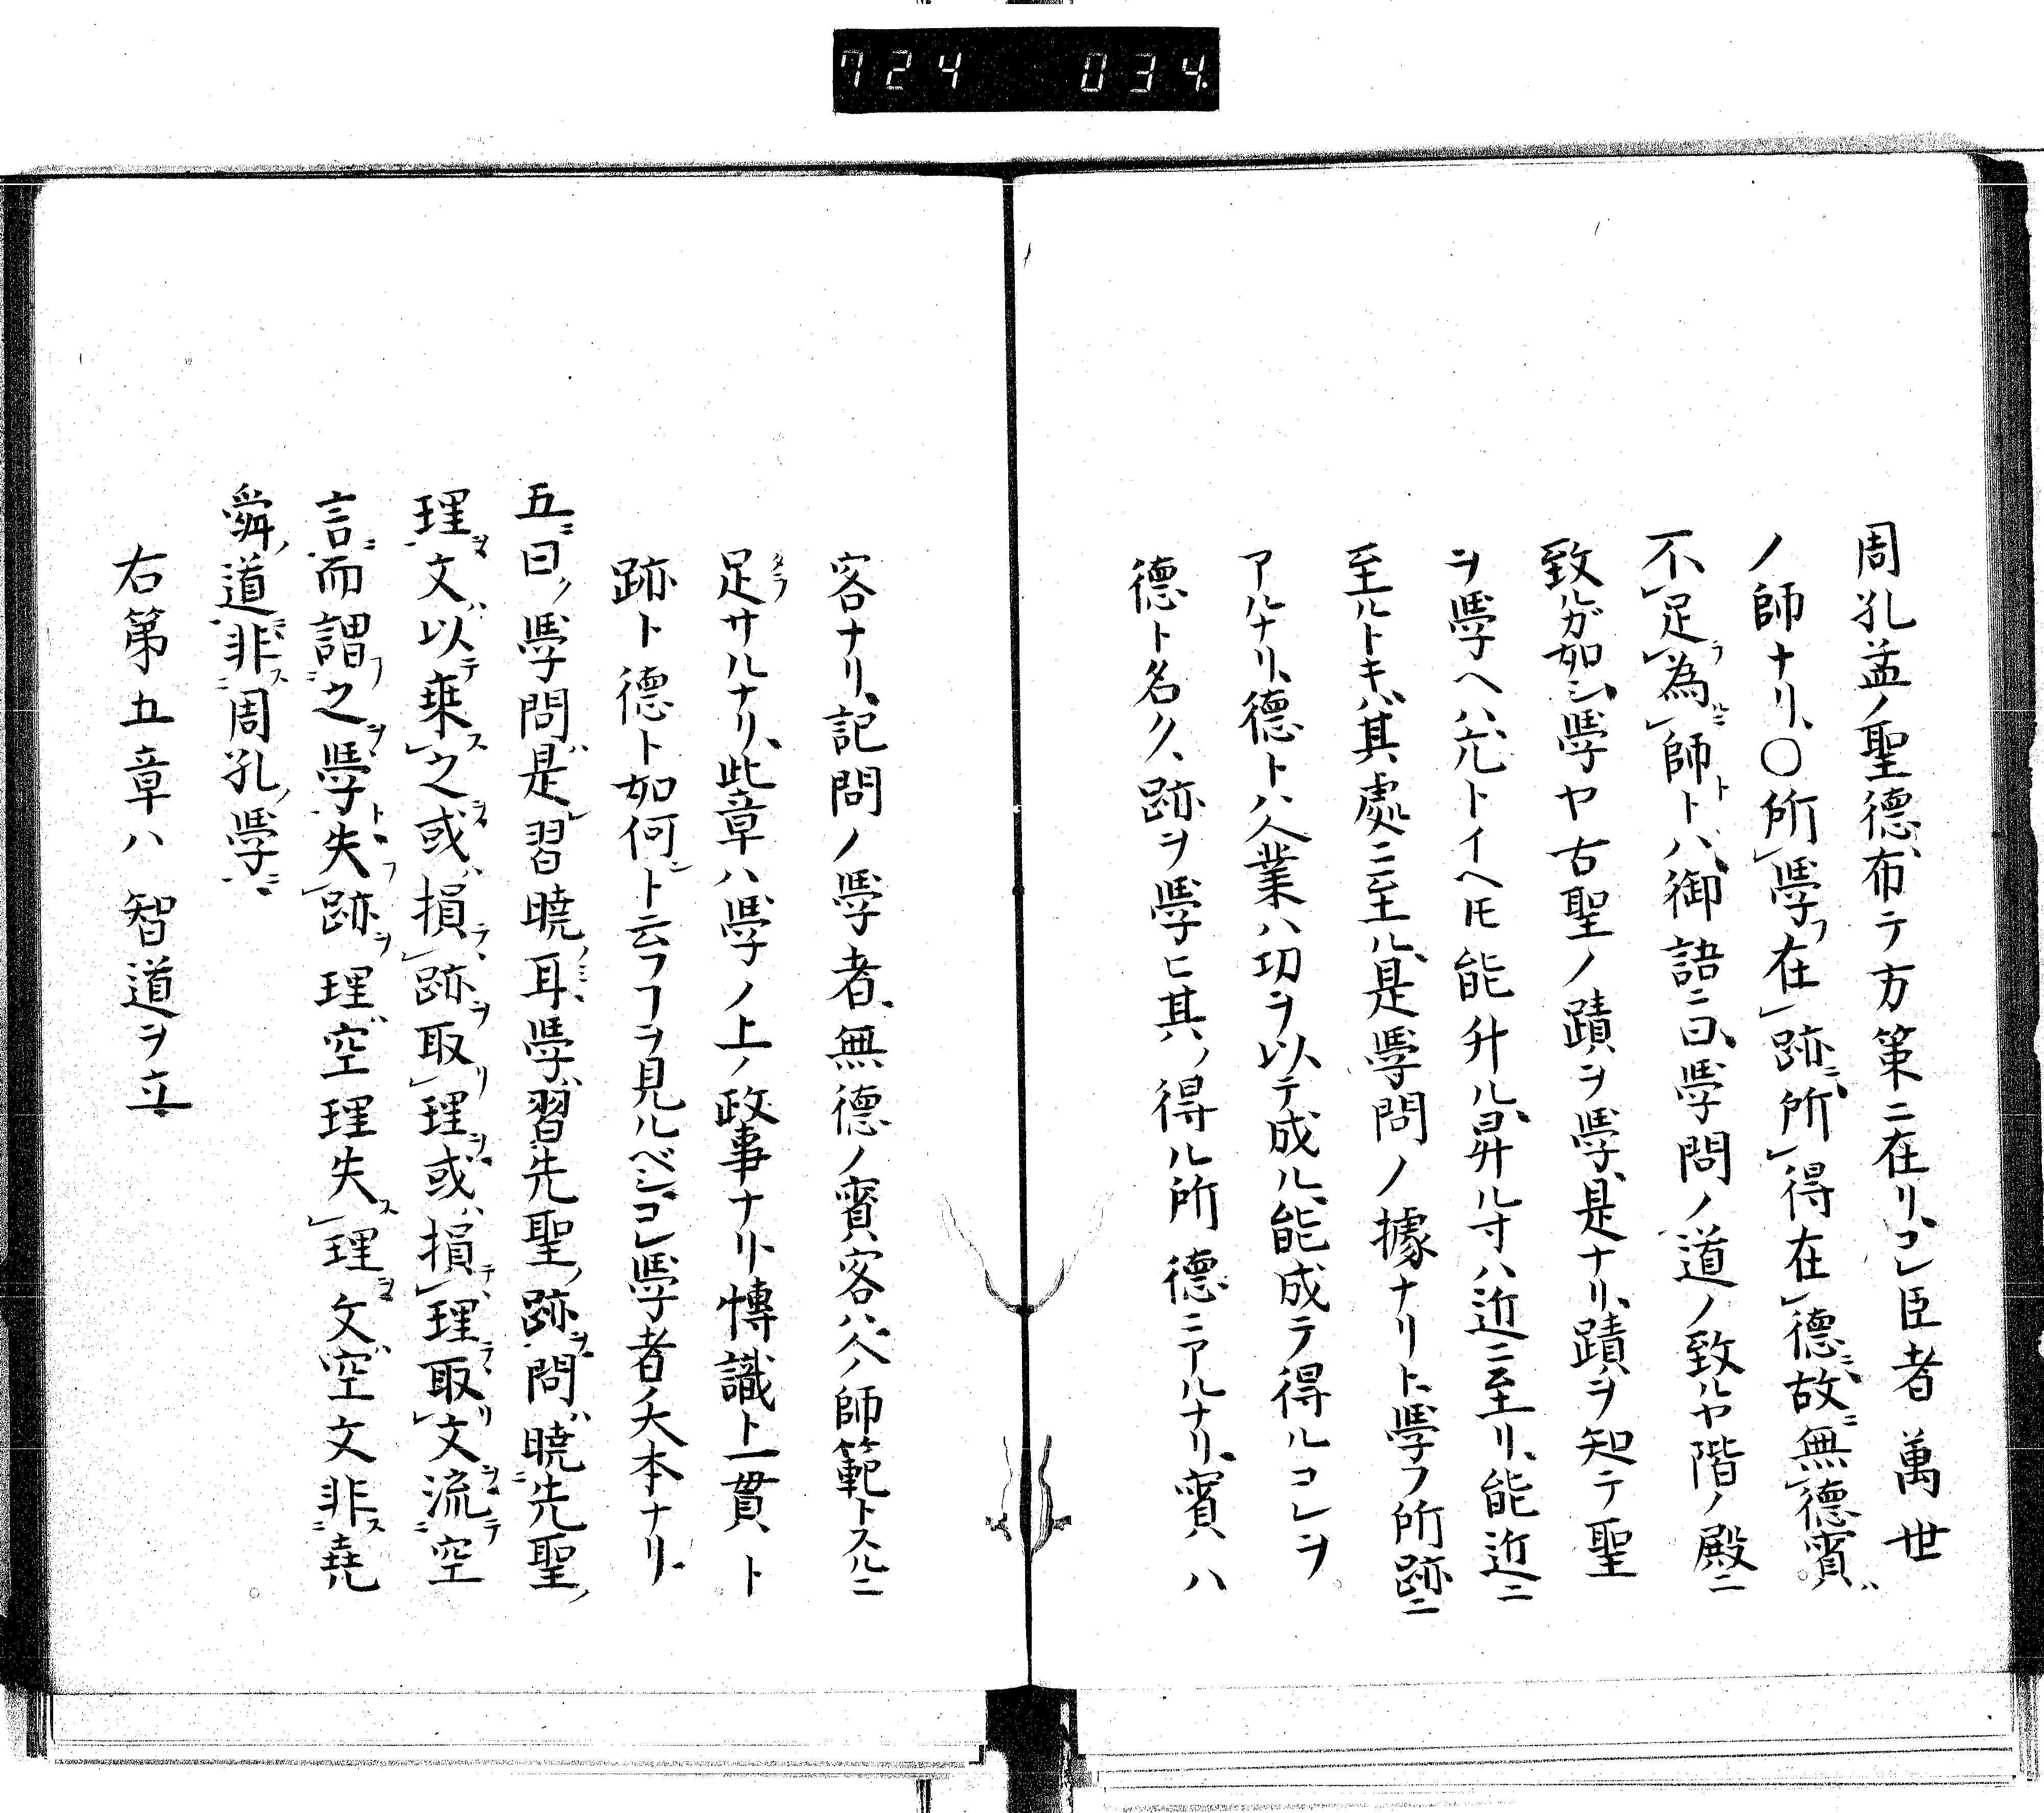 724 034
周孔孟ノ聖德、布テ方策ニ在リ、コレ臣者萬世
ノ師ナリ、〇所學フ在跡ニ、所得在德ニ、故ニ無德賓ハ
不足ラ為ルニ師トトハ、御語ニ曰、學問ノ道ノ致ルヤ階ノ殿ニ
致ルガ如シ、學ヤ古聖ノ蹟ヲ學、是ナリ、蹟ヲ知テ聖
ヲ學ヘハ、亢トイヘ𪜈能升ル、昇ル寸ハ近ニ至リ、能近ニ
至ルトキハ、其處ニ至ル、是學問ノ據ナリト、學フ所跡ニ
アルナリ、德トハ人業ハ功ヲ以テ成ル、能成テ得ルコレヲ
德ト名ク、跡ヲ學ヒ其ノ得ル所德ニアルナリ、賓ハ
客ナリ、記問ノ學者、無德ノ賓客ハ、人ノ師範トスルニ
足タラサルナリ、此章ハ學ノ上ノ政事ナリ、博識ト一貫ト
跡ト德ト如何シト云フヿヲ見ルベシ、コレ學者ノ大本ナリ
五ニ曰ク、學問ハ是レ習曉ノミ耳、學ハ習先聖ノ跡ヲ、問ハ曉先聖ノ
理ヲ、文ハ以テ乗ス之ヲ、或ハ損テ跡ヲ取リ理ヲ、或ハ損テ理ヲ取リ文ヲ、流テ空
言ニ而謂フ之ヲ學ト、失フ跡ヲ理ハ空理、失ス理ヲ文ハ空文、非ス堯
舜ノ道ニ、非ス周孔ノ學ニ
右第五章ハ智道ヲ立